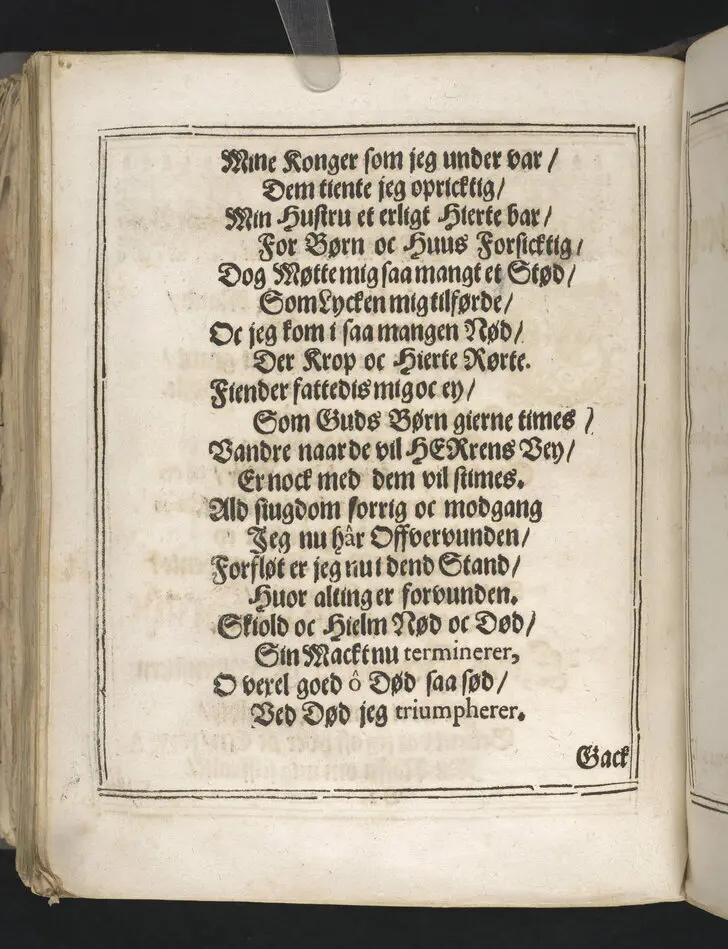 Mine Konger som jeg under var /
Dem tiente jeg opricktig /
Min Hustru et erligt Hierte bar /
For Børn oc Huus Forsicktig /
Dog Møtte mig saa mangt et Stød /
Som Lycken mig tilførde /
Oc jeg kom i saa mangen Nød /
Der Krop oc Hierte Rørte.
Fiender fattedis mig oc ey /
Som Guds Børn gierne times /
Vandre naar de vil HERrens Vey /
Er nock med dem vil stimes.
Ald siugdom sorrig oc modgang
Jeg nu hâr Offvervunden /
Forfløt er jeg nu i dend Stand /
Huor alting er forvunden.
Skiold oc Hielm Nød oc Død /
Sin Mackt nu terminerer,
O vexel goed ô Død saa sød /
Ved Død jeg triumpherer.
Gack